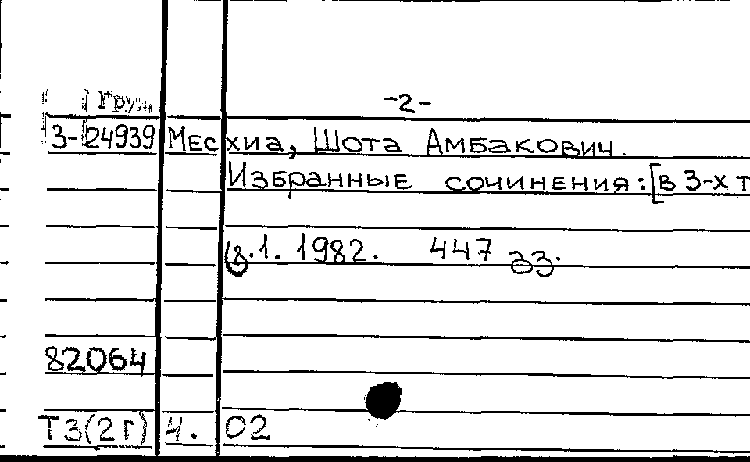 Груз -2-
3-24939 Месхиа, Шота Амбакович.
Избранные сочинения: [в 3-х т
ტ.1. 1982. 447 გვ.
82064
Т3(2Г) 4. 02